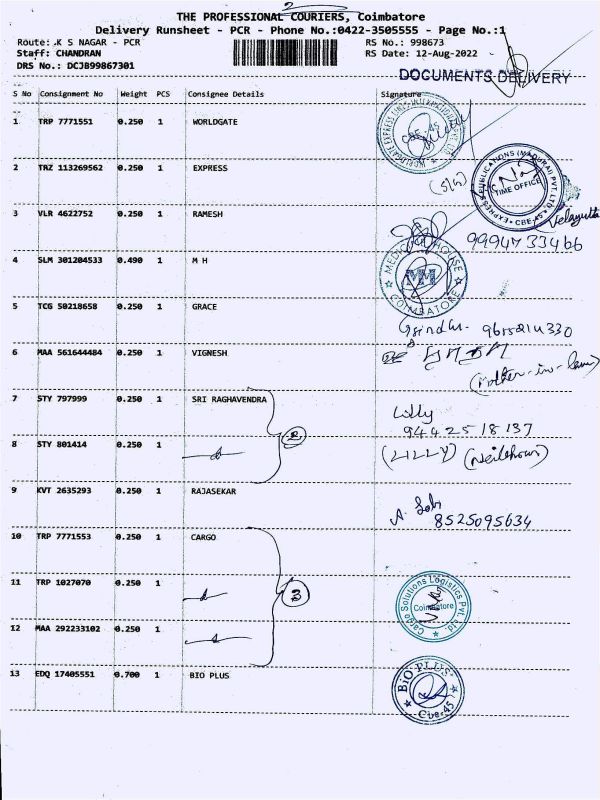 2
THE PROFESSIONAL COURIERS, Coimbatore
Delivery Runsheet - PCR - Phone No.:0422-3505555 - Page No.:1
Route: K S NAGAR - PCR
RS No.: 998673
Staff: CHANDRAN
RS Date: 12-Aug-2022
DRS No.: DCJB99867301
DOCUMENTS DELIVERY
S No Consignment No Weight PCS Consignee Details Signature
1 TRP 7771551 0.250 1 WORLDGATE
WORLDGATE EXPRESS LINES INTERNATIONAL PVT. LTD.
CBE-45
2 TRZ 113269562 0.250 1 EXPRESS
EXPRESS PUBLICATIONS (MADURAI) PVT. LTD.
TIME OFFICE
CBE-45
3 VLR 4622752 0.250 1 RAMESH
9994733466
4 SLM 301204533 0.490 1 M H
MEDICAL HOUSE
COIMBATORE
5 TCG 50218658 0.250 1 GRACE
6 MAA 561644484 0.250 1 VIGNESH
(Mother-in-law)
7 STY 797999 0.250 1 SRI RAGHAVENDRA
Lilly
9442518137
2
8 STY 801414 0.250 1
(LILLY)
9 KVT 2635293 0.250 1 RAJASEKAR
8525095634
10 TRP 7771553 0.250 1 CARGO
11 TRP 1027070 0.250 1
3
Cargo Solutions Logistics Pvt. Ltd.
Coimbatore
12 MAA 292233102 0.250 1
13 EDQ 17405551 0.700 1 BIO PLUS
BIO PLUS
Cbe-45